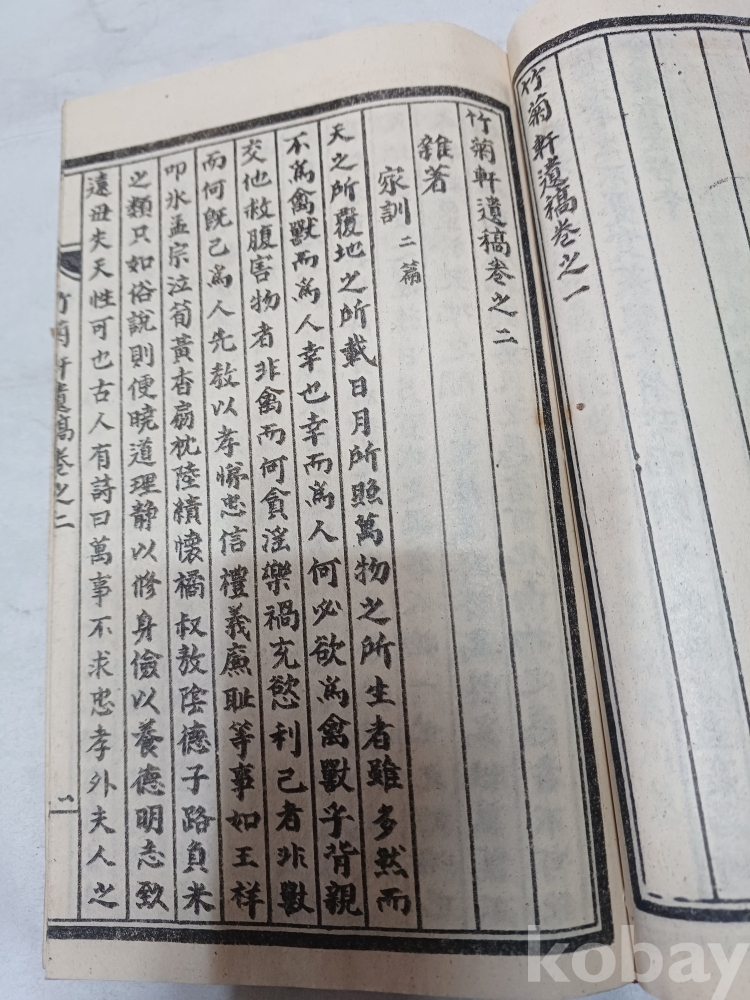 竹菊軒遺稿卷之一
竹菊軒遺稿卷之二
雜著
家訓 二篇
天之所覆地之所載日月所照萬物之所生者雖多然而
不爲禽獸而爲人幸也幸而爲人何必欲爲禽獸乎背親
交他救腹害物者非禽而何貪淫樂禍充慾利己者非獸
而何旣已爲人先敎以孝悌忠信禮義廉耻等事如王祥
叩氷孟宗泣筍黃香扇枕陸績懷橘叔敖陰德子路負米
之類只如俗說則便曉道理靜以修身儉以養德明志致
遠毋失天性可也古人有詩曰萬事不求忠孝外夫人之
竹菊軒遺稿卷之二
一
kobay